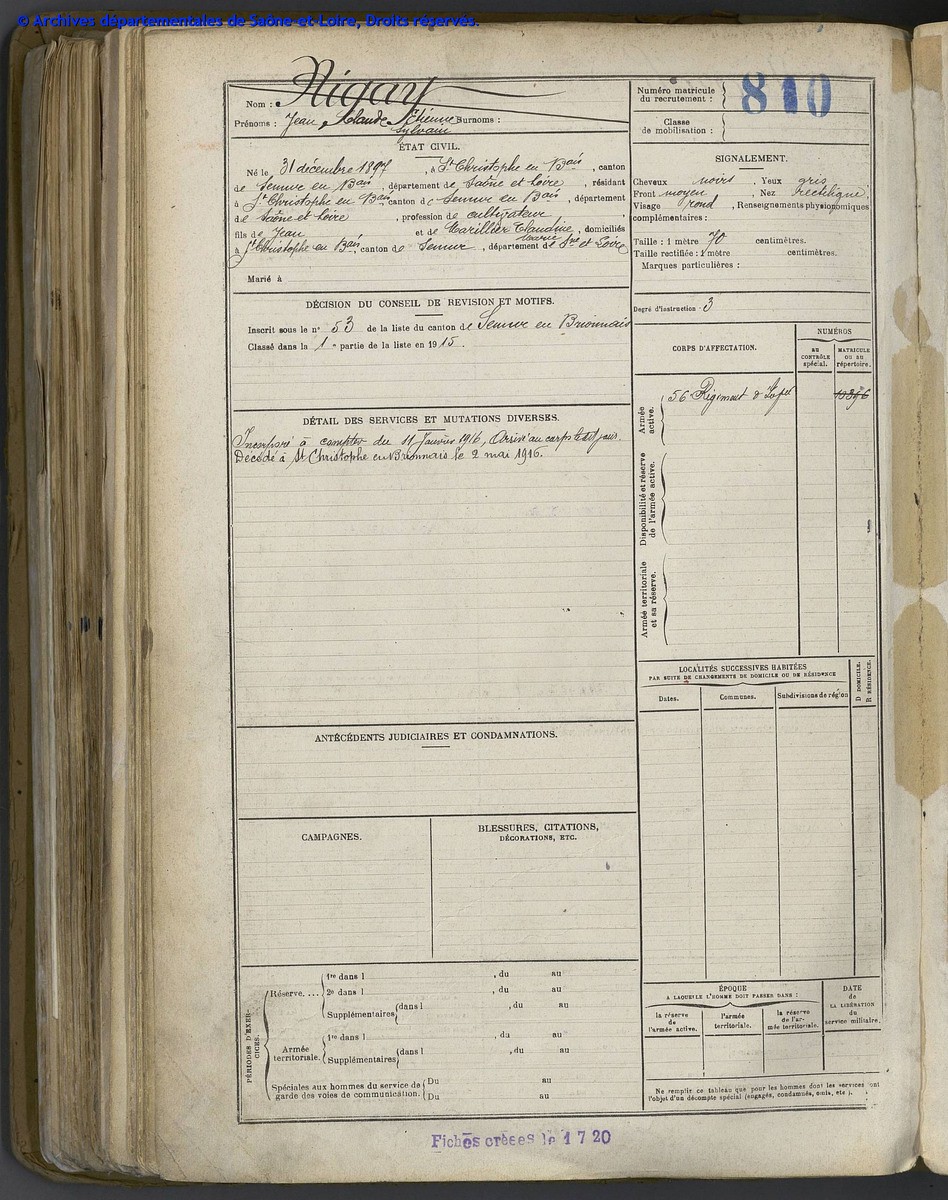 © Archives départementales de Saône-et-Loire, Droits réservés.
Nom : Nigay
Prénoms : Jean Claude Étienne Surnoms :
Sylvain
ÉTAT CIVIL.
Né le 31 décembre 1897, à St Christophe en Bais, canton
de Semur en Bais, département de Saône et Loire, résidant
à St Christophe en Bais, canton de Semur en Bais, département
de Saône et Loire, profession de cultivateur,
fils de Jean et de Carillier Claudine, domiciliés
Marie
à St Christophe en Bais, canton de Semur, département de Sne et Loire
Marié à
DÉCISION DU CONSEIL DE REVISION ET MOTIFS.
Inscrit sous le n° 53 de la liste du canton de Semur en Brionnais
Classé dans la 1e partie de la liste en 1915.
DÉTAIL DES SERVICES ET MUTATIONS DIVERSES.
Incorporé à compter du 11 Janvier 1916, Arrivé au corps le dit jour.
Décédé à St Christophe en Brionnais le 2 mai 1916.
ANTÉCÉDENTS JUDICIAIRES ET CONDAMNATIONS.
CAMPAGNES.
BLESSURES, CITATIONS,
DÉCORATIONS, ETC.
PÉRIODES D'EXERCICES.
Réserve....
1re dans l , du au
2e dans l , du au
Supplémentaires dans l , du au
Armée
territoriale.
1re dans l , du au
Supplémentaires dans l , du au
Spéciales aux hommes du service de
garde des voies de communication.
Du au
Du au
Numéro matricule
du recrutement :
810
Classe
de mobilisation :
SIGNALEMENT.
Cheveux noirs, Yeux gris
Front moyen, Nez rectiligne,
Visage rond, Renseignements physionomiques
complémentaires :
Taille : 1 mètre 70 centimètres.
Taille rectifiée : 1 mètre centimètres.
Marques particulières :
Degré d'instruction : 3
CORPS D'AFFECTATION.
NUMÉROS
AU
CONTRÔLE
spécial.
MATRICULE
OU AU
répertoire.
Armée
active.
56e Régiment d'Infie
Disponibilité et réserve
de l'armée active.
Armée territoriale
et sa réserve.
LOCALITÉS SUCCESSIVES HABITÉES
PAR SUITE DE CHANGEMENTS DE DOMICILE OU DE RÉSIDENCE
D DOMICILE.
R RÉSIDENCE.
Dates.
Communes.
Subdivisions de région
ÉPOQUE
A LAQUELLE L'HOMME DOIT PASSER DANS :
la réserve
de
l'armée active.
l'armée
territoriale.
la réserve
de l'ar-
mée territoriale.
DATE
de
LA LIBÉRATION
du
service militaire.
Ne remplir ce tableau que pour les hommes dont les services ont
l'objet d'un décompte spécial (engagés, condamnés, omis, etc.).
Fiches créées le 1 7 20